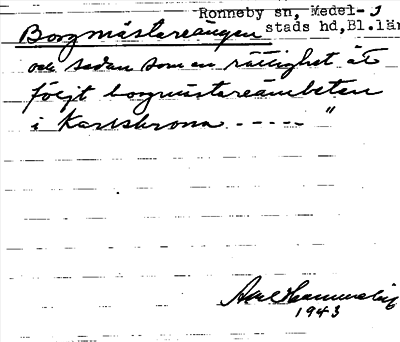 Ronneby sn, Medel-
stads hd, Bl.län
Borgmästareängen
och sedan som en rättighet åt
följt borgmästareämbeten
i Karlskrona -----"
Axel
1943